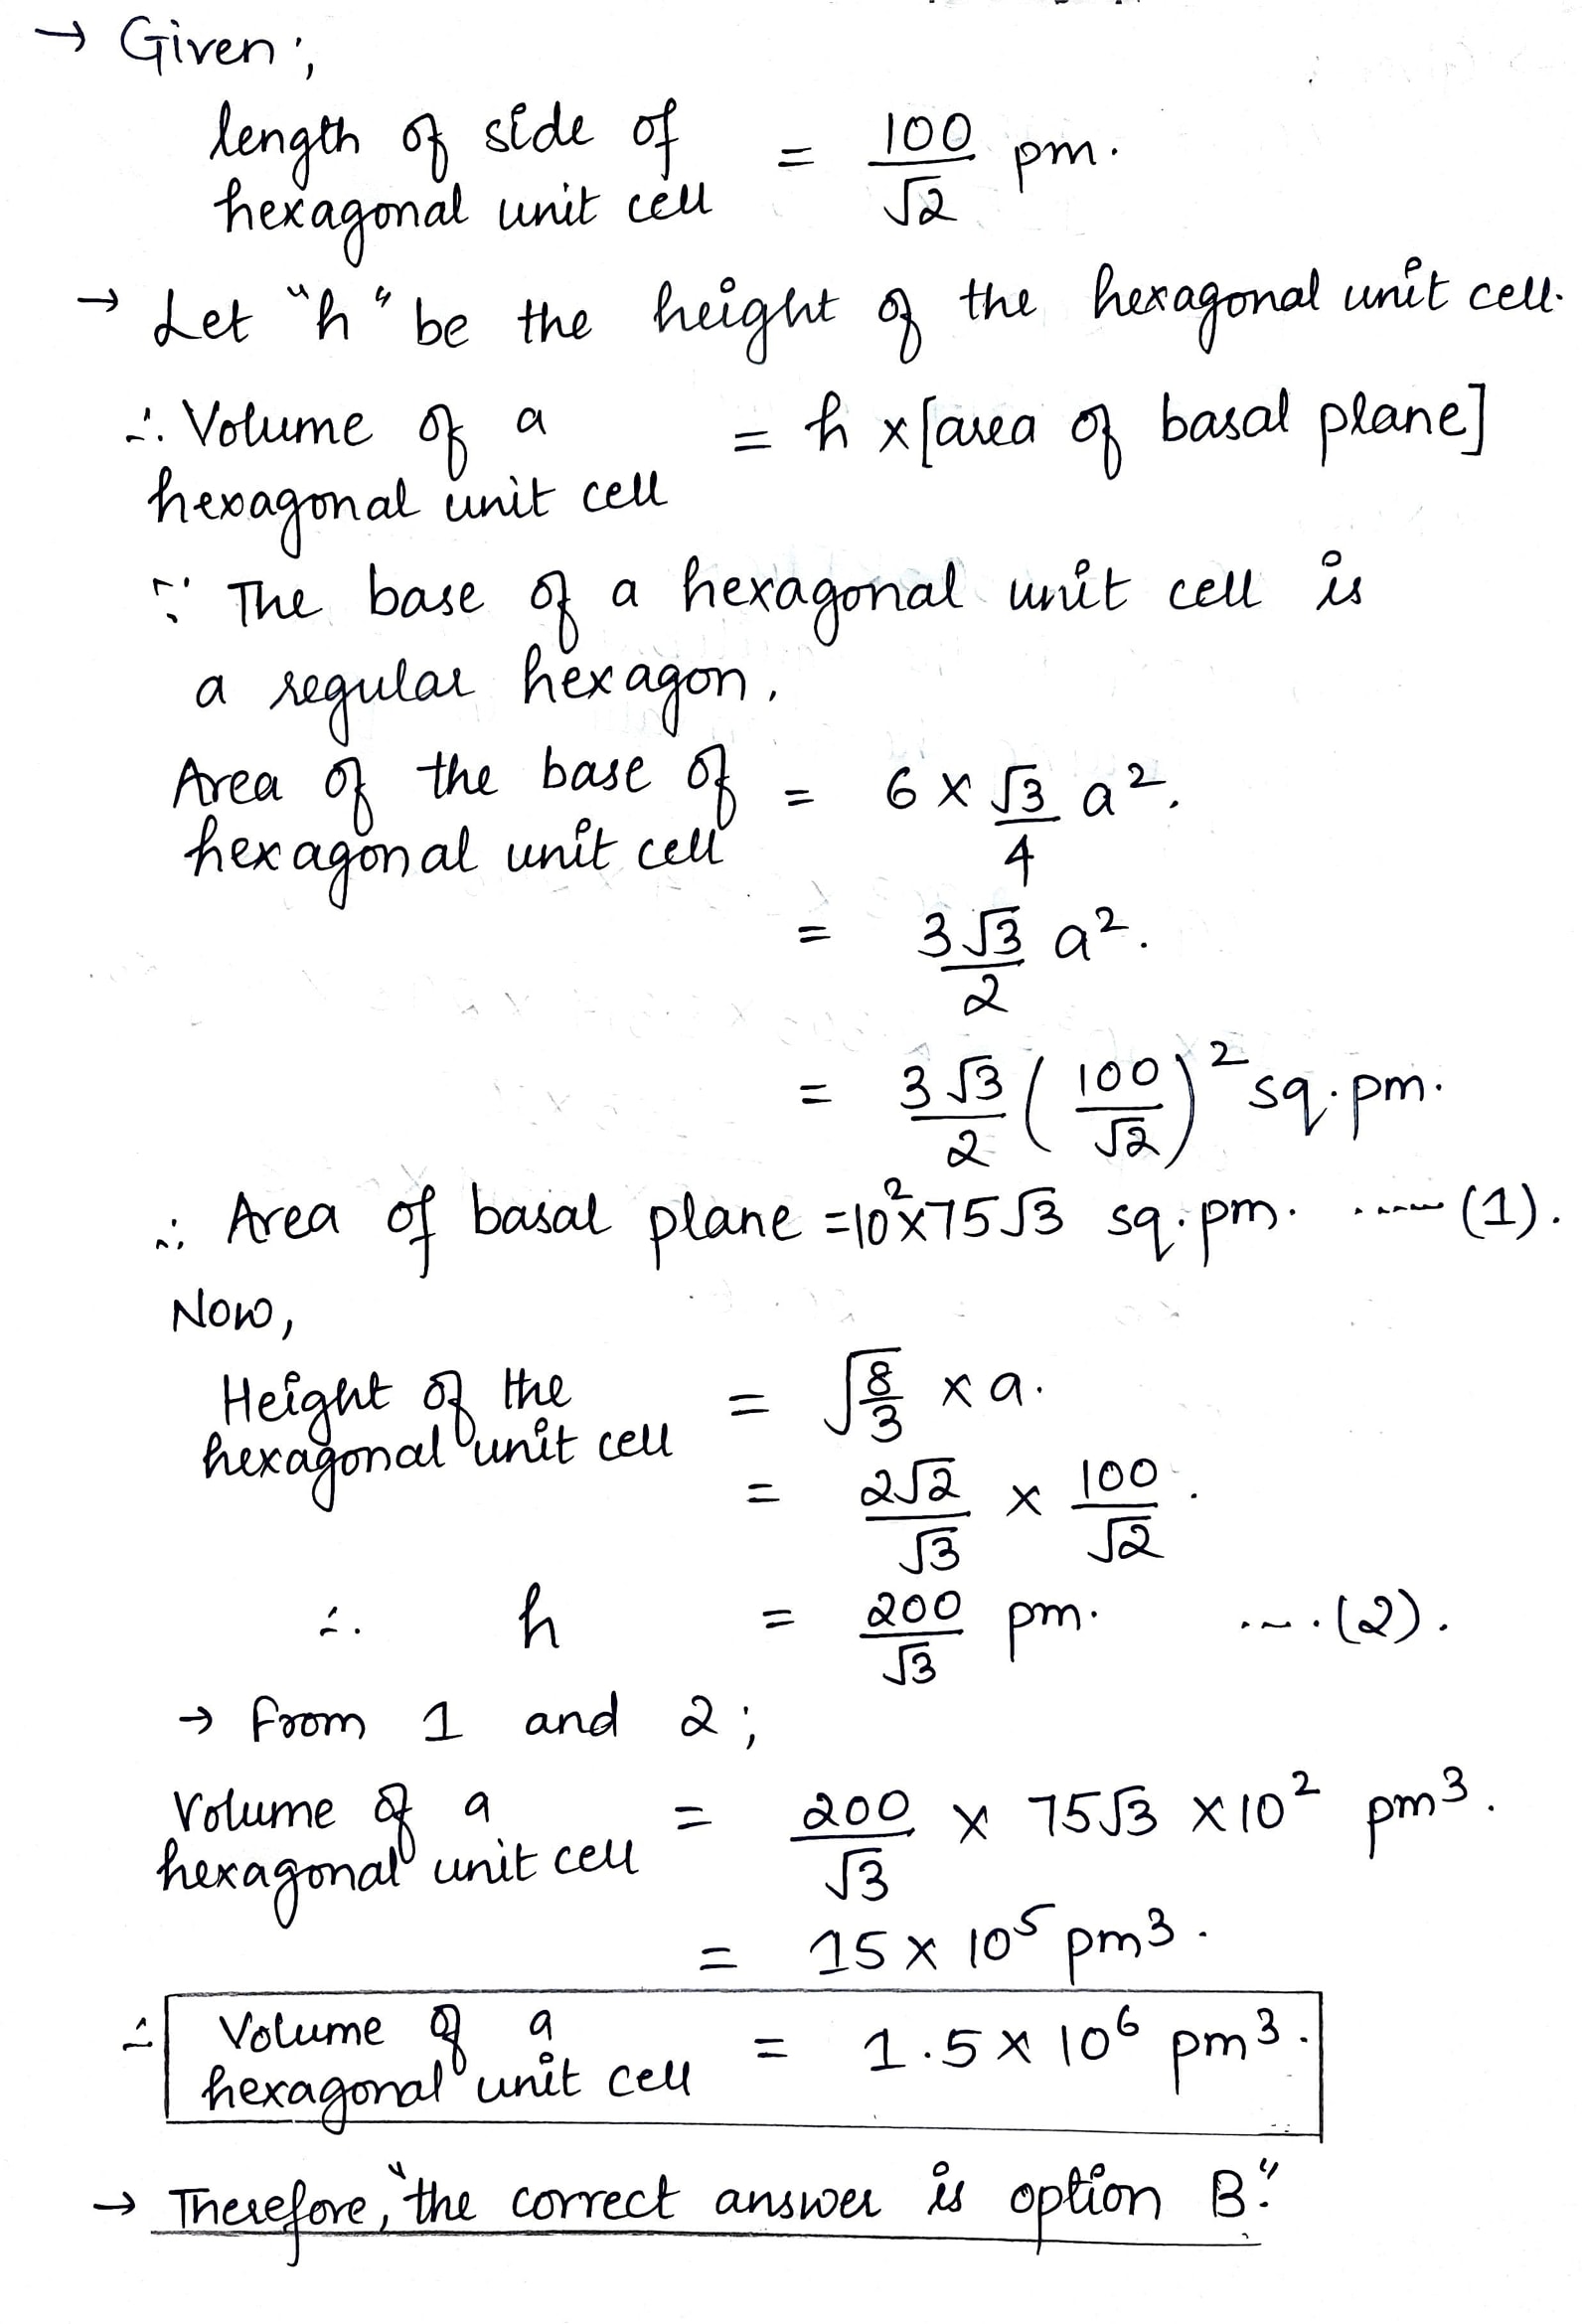 → Given;
length of side of hexagonal unit cell = 100/√2 pm.
→ Let "h" be the height of the hexagonal unit cell.
∴ Volume of a hexagonal unit cell = h x [area of basal plane]
∵ The base of a hexagonal unit cell is
a regular hexagon.
Area of the base of hexagonal unit cell = 6 x √3/4 a².
= 3√3/2 a².
= 3√3/2 (100/√2)² sq.pm.
∴ Area of basal plane = 10² x 75√3 sq.pm. ..... (1).
Now,
Height of the hexagonal unit cell = √(8/3) x a.
= 2√2/√3 x 100/√2.
∴ h = 200/√3 pm. ....(2).
→ From 1 and 2;
Volume of a hexagonal unit cell = 200/√3 x 75√3 x 10² pm³.
= 15 x 10⁵ pm³.
∴ Volume of a hexagonal unit cell = 1.5 x 10⁶ pm³.
→ Therefore, "the correct answer is option B."